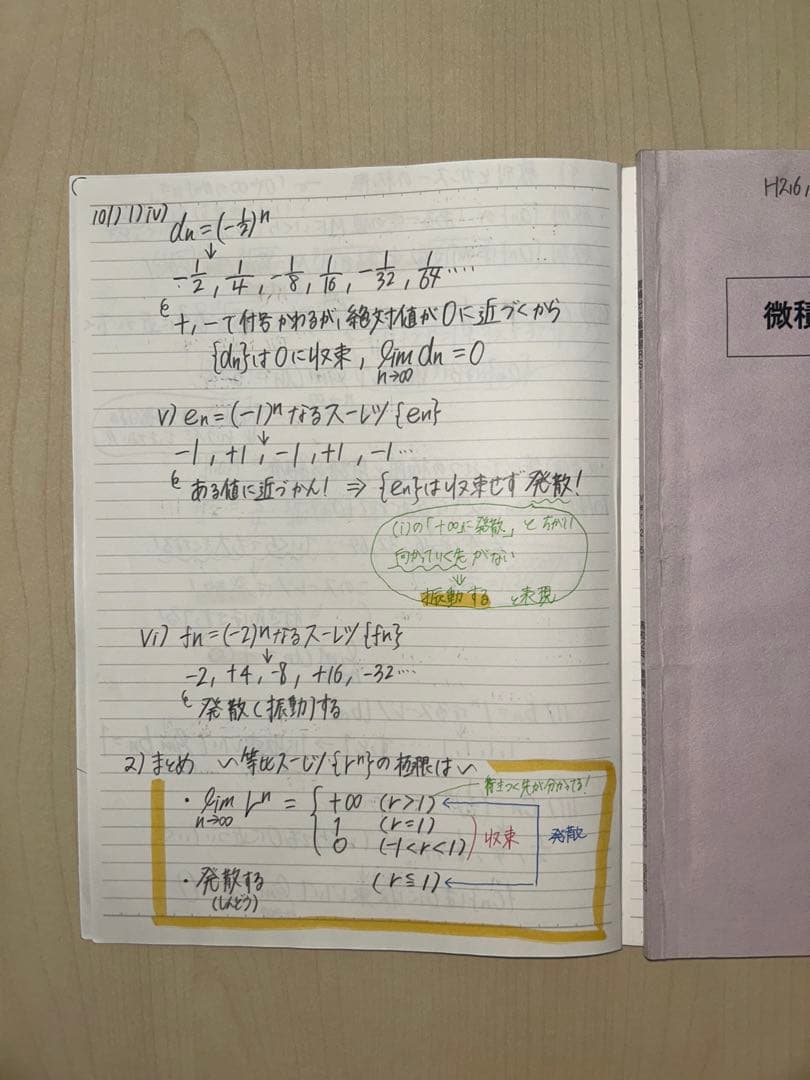 10(1) 1) iv)
dn = (-1/2)^n
↓
-1/2, 1/4, -1/8, 1/16, -1/32, 1/64 ....
+, -で付号かわるが, 絶対値が0に近づくから
{dn}は0に収束, lim n→∞ dn = 0
v) en = (-1)^n なるスーレツ{en}
↓
-1, +1, -1, +1, -1 ...
ある値に近づかん! ⇒ {en}は収束せず発散!
(i)の「+∞に発散」とちがい
向かっていく先がない
↓
振動する と表現
vi) fn = (-2)^n なるスーレツ{fn}
↓
-2, +4, -8, +16, -32 ...
発散(振動)する
2) まとめ 〜等比スーレツ{r^n}の極限は〜
行きつく先が分かってる!
・lim n→∞ r^n = { +∞ (r>1)
1 (r=1)
0 (-1<r<1)
収束
発散
・発散する (r≦1)
(しんどう)
H216
微積